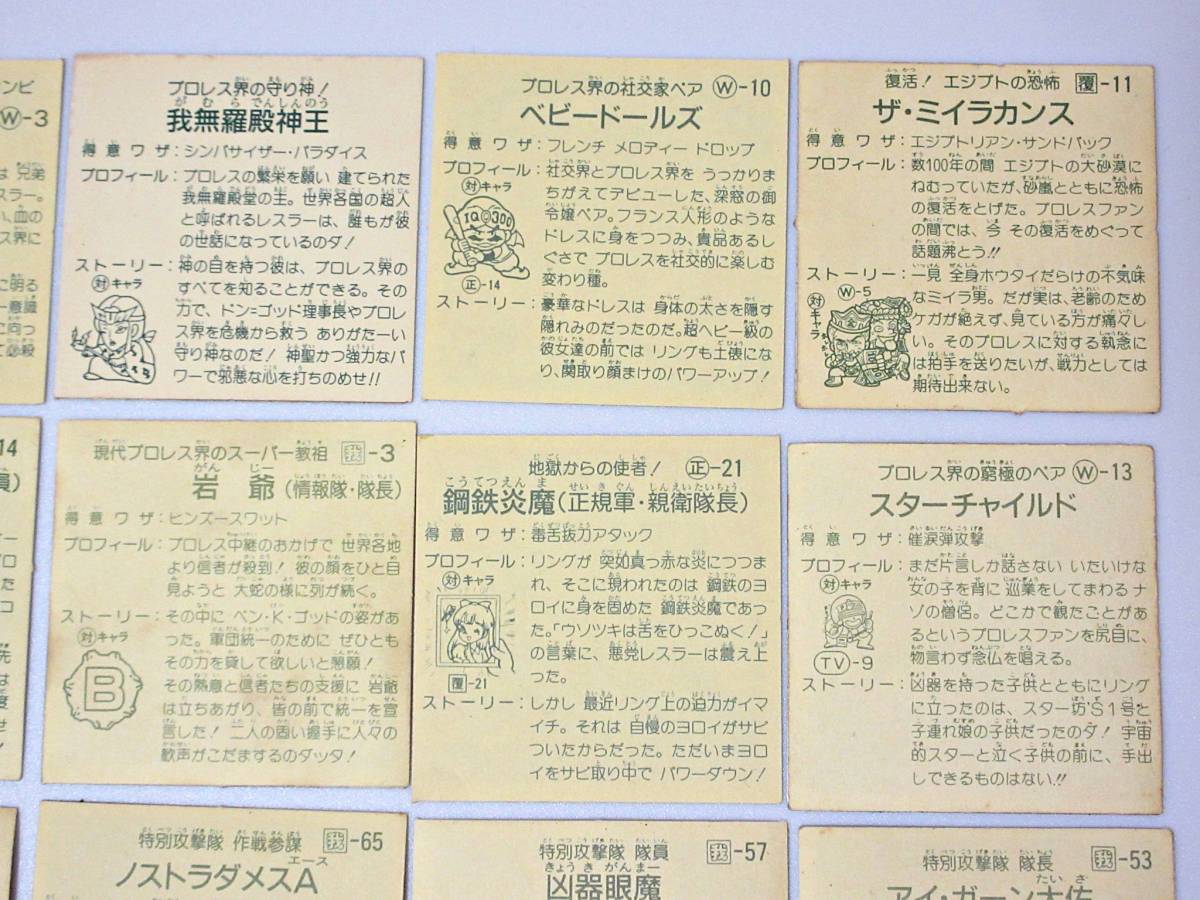 ンビ
Ⓦ-3
兄弟
スラー。
血の
ス界に
に明る
一意識
に向っ
プロレス界の守り神!
我無羅殿神王
得意ワザ:シンパサイザー・パラダイス
プロフィール:プロレスの繁栄を願い 建てられた
我無羅殿堂の王。世界各国の超人
と呼ばれるレスラーは、誰もが彼
の世話になっているのダ!
ストーリー:神の目を持つ彼は、プロレス界の
すべてを知ることができる。その
力で、ドン=ゴッド理事長やプロレ
ス界を危機から救う ありがたーい
守り神なのだ! 神聖かつ強力なパ
ワーで邪悪な心を打ちのめせ!!
対キャラ
プロレス界の社交家ペア Ⓦ-10
ベビードールズ
得意ワザ:フレンチ メロディー ドロップ
プロフィール:社交界とプロレス界を うっかりま
ちがえてデビューした、深窓の御
令嬢ペア。フランス人形のような
ドレスに身をつつみ、貴品あるし
ぐさで プロレスを社交的に楽しむ
変わり種。
対キャラ
IQ300
正-14
ストーリー:豪華なドレスは 身体の太さを隠す
隠れみのだったのだ。超ヘビー級の
彼女達の前では リングも土俵にな
り、関取り顔まけのパワーアップ!
復活! エジプトの恐怖 覆-11
ザ・ミイラカンス
得意ワザ:エジプトリアン・サンドバック
プロフィール:数100年の間 エジプトの大砂漠に
ねむっていたが、砂嵐とともに恐怖
の復活をとげた。プロレスファン
の間では、今 その復活をめぐって
話題沸とう!!
ストーリー:一見 全身ホウタイだらけの不気味
なミイラ男。だが実は、老齢のため
ケガが絶えず、見ている方が痛々し
い。そのプロレスに対する執念に
は拍手を送りたいが、戦力としては
期待出来ない。
対キャラ
Ⓦ-5
14
員)
現代プロレス界のスーパー教祖 我-3
岩爺(情報隊・隊長)
得意ワザ:ヒンズースワット
プロフィール:プロレス中継のおかげで 世界各地
より信者が殺到! 彼の顔をひと目
見ようと 大蛇の様に列が続く。
ストーリー:その中に ベン・K・ゴッドの姿があ
った。軍団統一のために ぜひとも
その力を貸して欲しいと懇願!
その熱意と信者たちの支援に 岩爺
は立ちあがり、皆の前で統一を宣
言した! 二人の固い握手に人々の
歓声がこだまするのダッタ!
対キャラ
B
地獄からの使者! 正-21
鋼鉄炎魔(正規軍・親衛隊長)
得意ワザ:毒舌抜刀アタック
プロフィール:リングが 突如真っ赤な炎につつま
れ、そこに現われたのは 鋼鉄のヨ
ロイに身を固めた 鋼鉄炎魔であっ
た。「ウソツキは舌をひっこぬく!」
の言葉に、悪党レスラーは震え上
った。
対キャラ
覆-21
ストーリー:しかし 最近リング上の迫力がイマ
イチ。それは 自慢のヨロイがサビ
ついたからだった。ただいまヨロ
イをサビ取り中で パワーダウン!
プロレス界の窮極のペア Ⓦ-13
スターチャイルド
得意ワザ:催涙弾攻撃
プロフィール:まだ片言しか話さない いたいけな
女の子を背に 巡業をしてまわるナ
ゾの僧侶。どこかで観たことがあ
るというプロレスファンを尻目に、
物言わず念仏を唱える。
対キャラ
TV-9
ストーリー:凶器を持った子供とともにリング
に立ったのは、スター坊S1号と
子連れ娘の子供だったのダ! 宇宙
的スターと泣く子供の前に、手出
しできるものはない!!
特別攻撃隊 作戦参謀 我-65
ノストラダメスA
エース
特別攻撃隊 隊員 我-57
凶器眼魔
特別攻撃隊 隊長 我-53
アイ・ガーン大佐